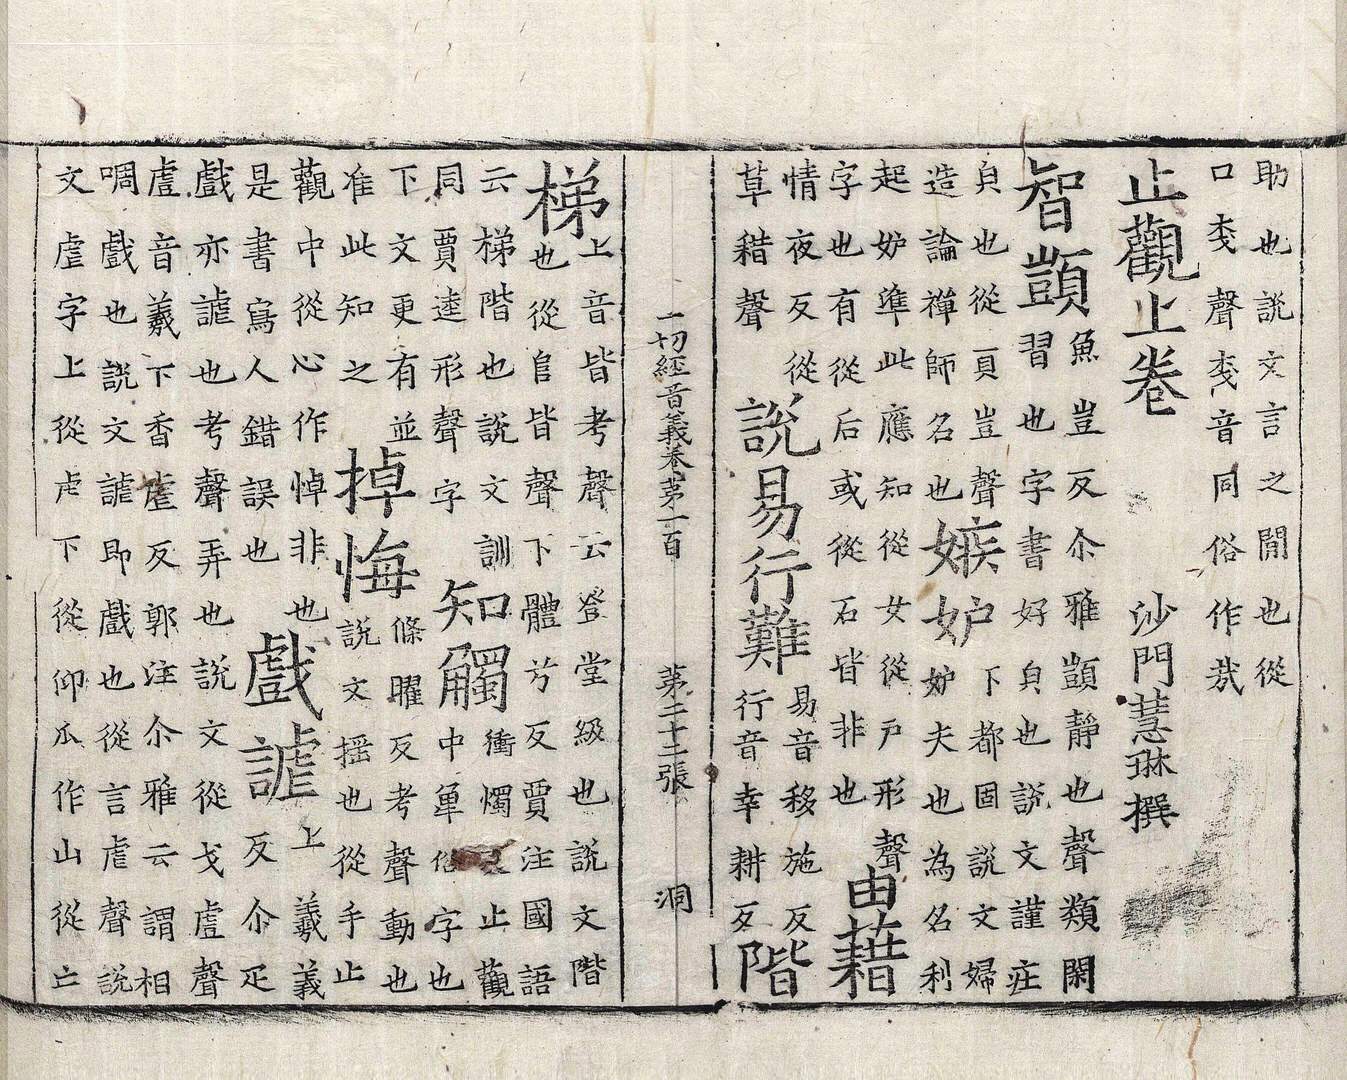 助也說文言之閒也從
口𢦏聲𢦏音同俗作㢤
止觀上卷　沙門慧琳撰
智顗
魚豈反尒雅顗靜也聲類閑
習也字書好皃也說文謹莊
皃也從頁豈聲
造論禪師名也
嫉妒
下都固說文婦
妒夫也為名利
起妒準此應知從女從戶形聲
字也有從后或從石皆非也
由藉
情夜反從
草耤聲
說易行難
易音移施反
行音幸耕反
階
一切經音義卷第一百　第二十二張　洞
梯
上音皆考聲云登堂級也說文階
也從𨸏皆聲下體兮反賈注國語
云梯階也說文訓
同賈逵形聲字
知觸
衝燭反止觀
中單俗字也
下文更有並
准此知之
掉悔
條曜反考聲動也
說文搖也從手止
觀中從心作悼非也
是書寫人錯誤也
戲謔
上羲義
反尒疋
戲亦謔也考聲弄也說文從戈䖒聲
䖒音羲下香虐反郭注尒雅云謂相
啁戲也說文謔即戲也從言虐聲說
文虐字上從虍下從仰爪作山從亡